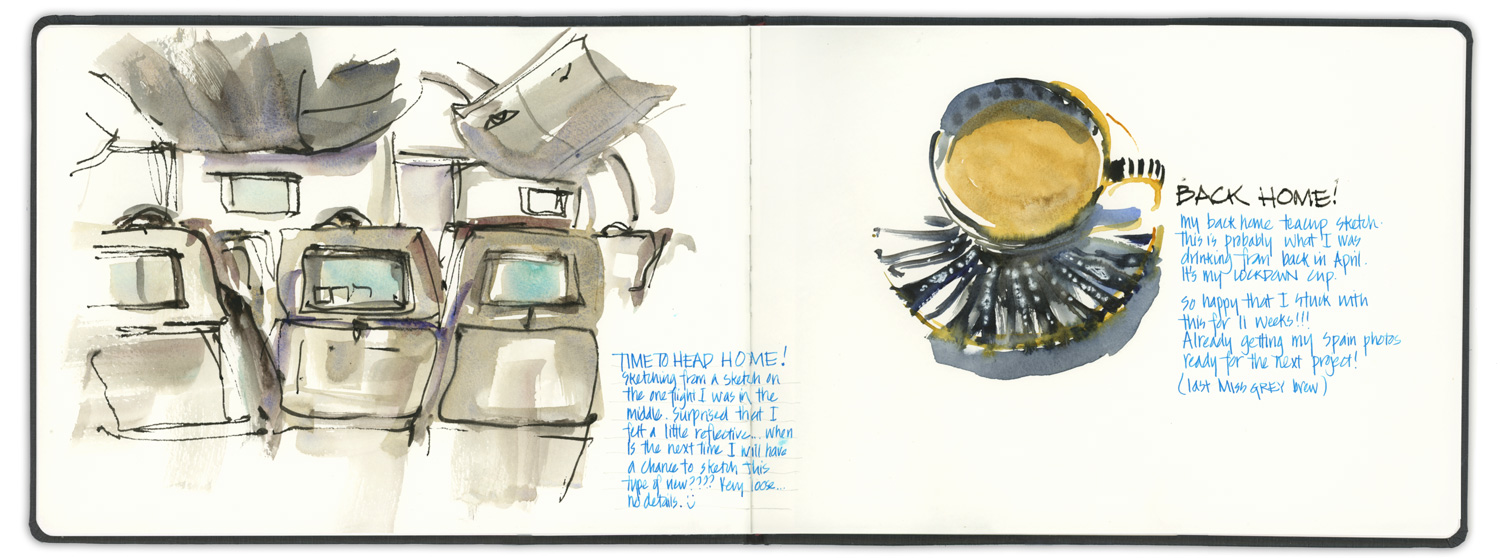 TIME TO HEAD HOME!
Sketching from a sketch on
the one flight I was in the
middle. Surprised that I
felt a little reflective... When
is the next time I will have
a chance to sketch this
type of view???? Very loose...
no details. :)
BACK HOME!
My back home teacup sketch.
This is probably what I was
drinking from back in April.
It's my LOCKDOWN cup.
So happy that I stuck with
this for 11 weeks!!!
Already getting my Spain photos
ready for the next project!
(last MISS GREY brew)